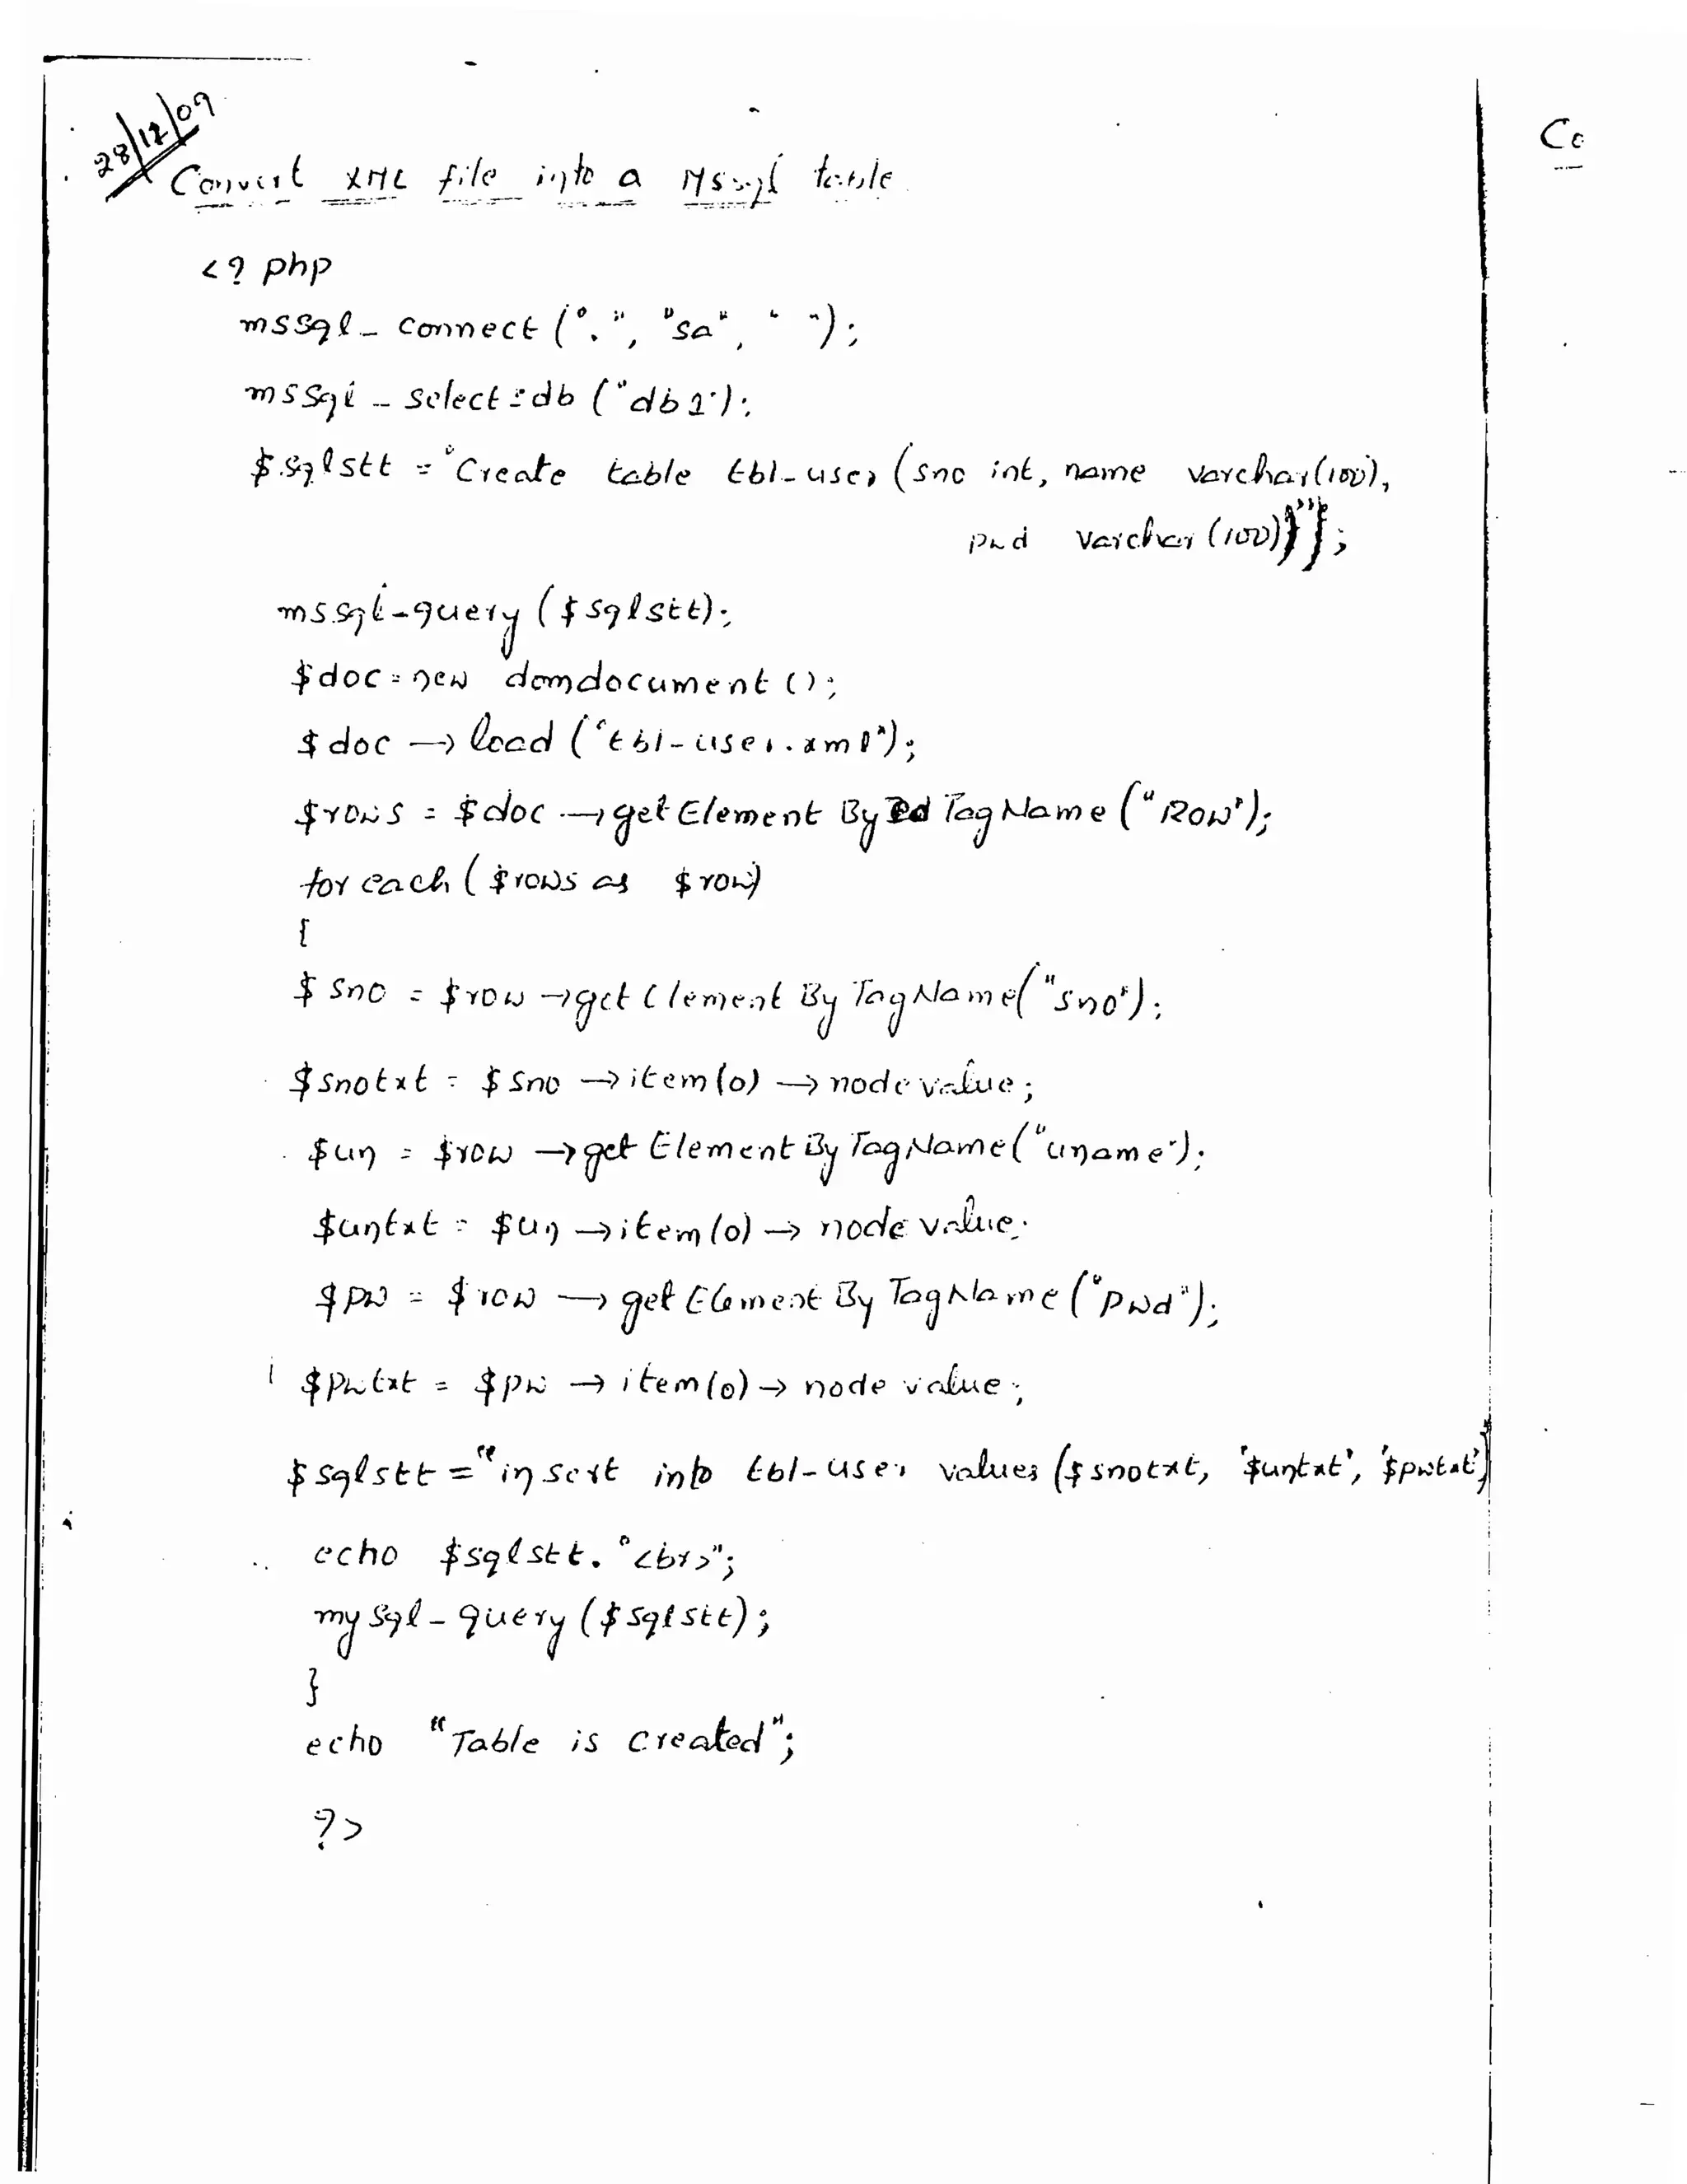 28/12/09
Convert XML file into a Mssql table.
<? php
mssql_connect (".", "sa", " ");
mssql_select_db ("db1");
$sqlstt = "Create table tbl_user (sno int, name varchar(100),
pwd varchar (100))";
mssql_query ($sqlstt);
$doc = new domdocument ();
$doc → load ("tbl_user.xml");
$rows = $doc → getElement By TagName ("ROW");
foreach ($rows as $row)
{
$sno = $row → getElement By TagName("sno");
$snotxt = $sno → item(0) → nodevalue;
$un = $row → getElement By TagName("uname");
$untxt = $un → item(0) → nodevalue;
$pw = $row → getElement By TagName ("pwd");
$pwtxt = $pw → item(0) → node value;
$sqlstt = "insert into tbl_user values ($snotxt, '$untxt', '$pwtxt')
echo $sqlstt. "<br>";
mysql_query ($sqlstt);
}
echo "Table is created";
?>
Co